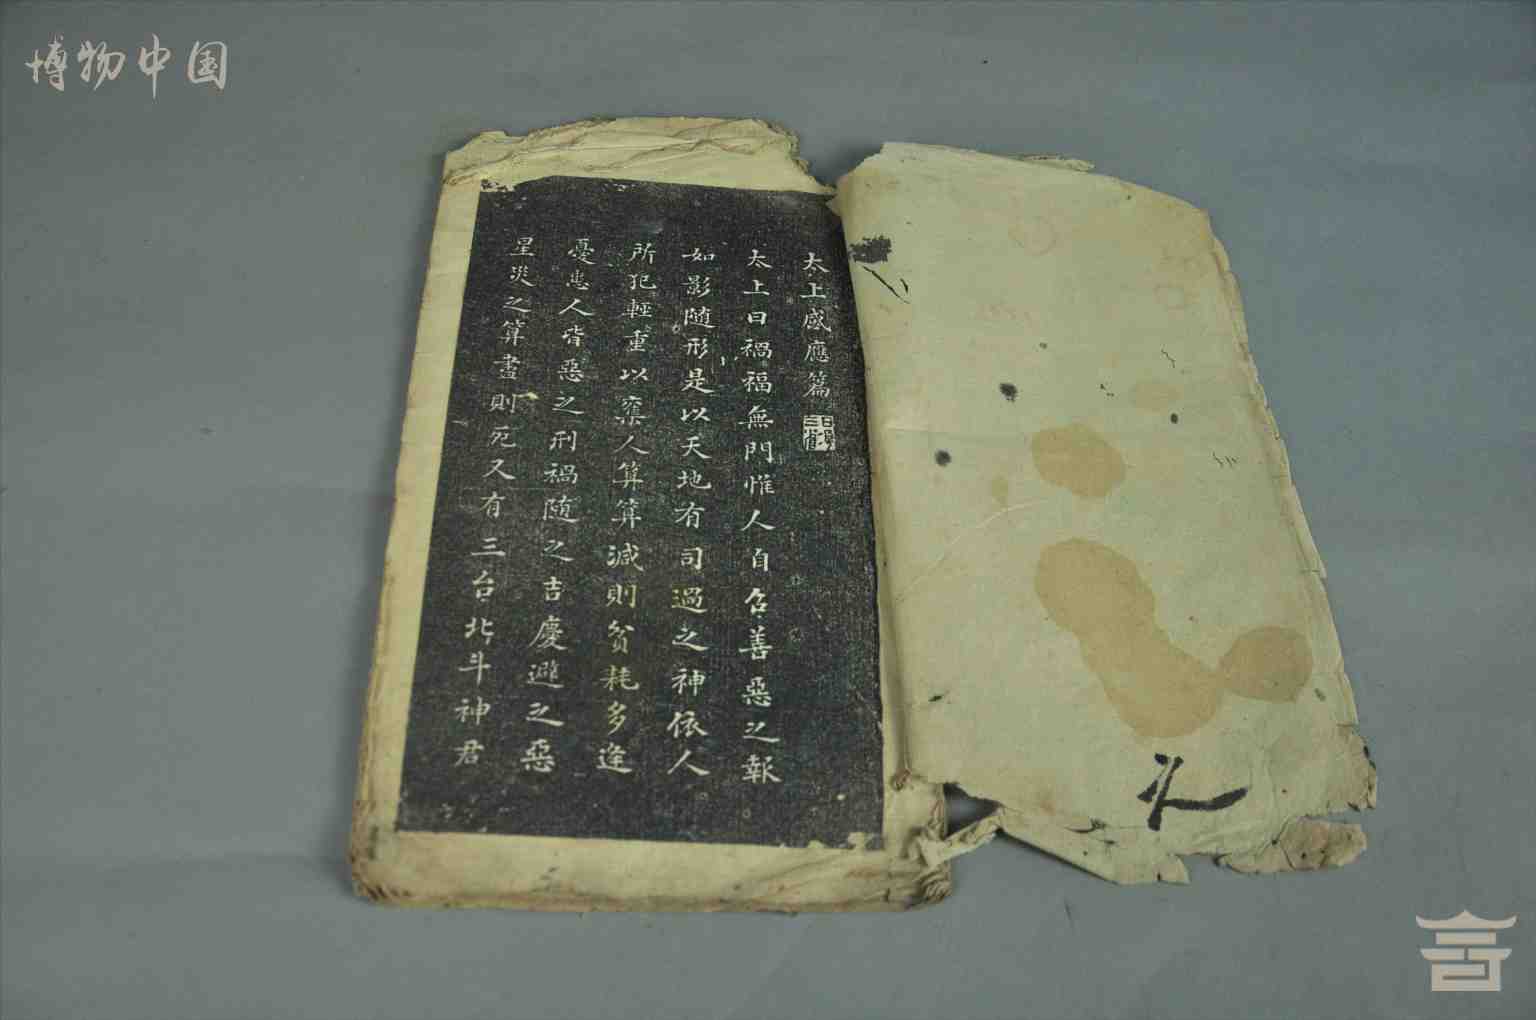 博物中国
太上感應篇
太上曰禍福無門惟人自召善惡之報
如影随形是以天地有司過之神依人
所犯輕重以奪人算算減則貧耗多逢
憂患人皆惡之刑禍随之吉慶避之惡
星災之算盡則死又有三台北斗神君